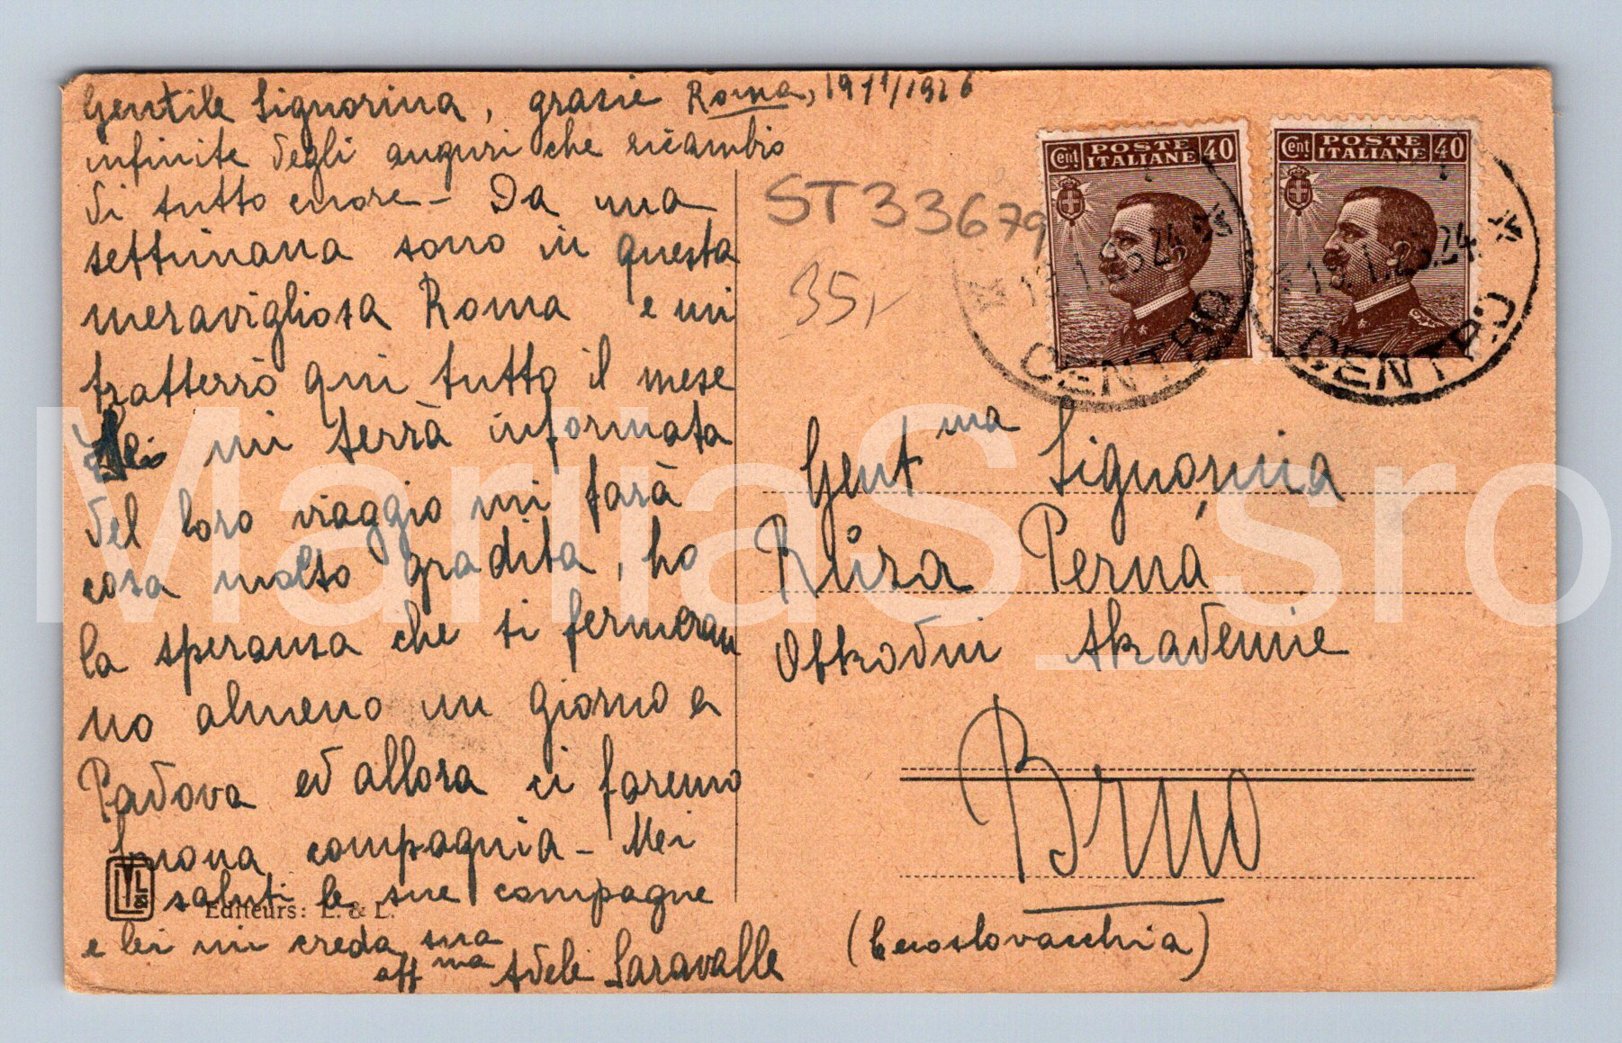 Gentile Signorina, grazie Roma, 19 1/1926
infinite degli auguri che ricambio
di tutto cuore - Da una
settimana sono in questa
meravigliosa Roma e mi
tratterrò qui tutto il mese
Lei mi terrà informata
del loro viaggio mi farà
cosa molto gradita, ho
la speranza che si fermeran
no almeno un giorno a
Padova ed allora ci faremo
buona compagnia - Mei
saluti le sue compagne
e lei mi creda sua
aff ma Adele Saravalle
Editeurs: L. & L.
ST33679
35,-
Cent POSTE ITALIANE 40
Cent POSTE ITALIANE 40
CENTRO
CENTRO
Gent ma Signorina
Růza Perná
Obkodni Akademie
Brno
(Cecoslovacchia)
MariiaS_sro